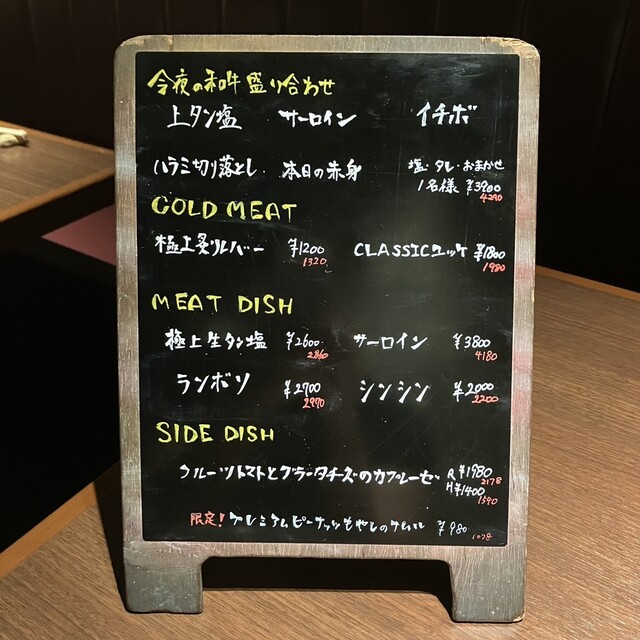 今夜の和牛盛り合わせ
上タン塩 サーロイン イチボ
ハラミ切り落とし 本日の赤身 塩・タレ・おまかせ
1名様 ¥3900
4290
COLD MEAT
極上炙りレバー ¥1200 CLASSICユッケ ¥1800
1320 1980
MEAT DISH
極上生タン塩 ¥2600 サーロイン ¥3800
2860 4180
ランボソ ¥2700 シンシン ¥2000
2970 2200
SIDE DISH
フルーツトマトとブラータチーズのカプレーゼ R ¥1980
2178
H ¥1400
1540
限定! プレミアムピーナッツもやしの ¥980
1078